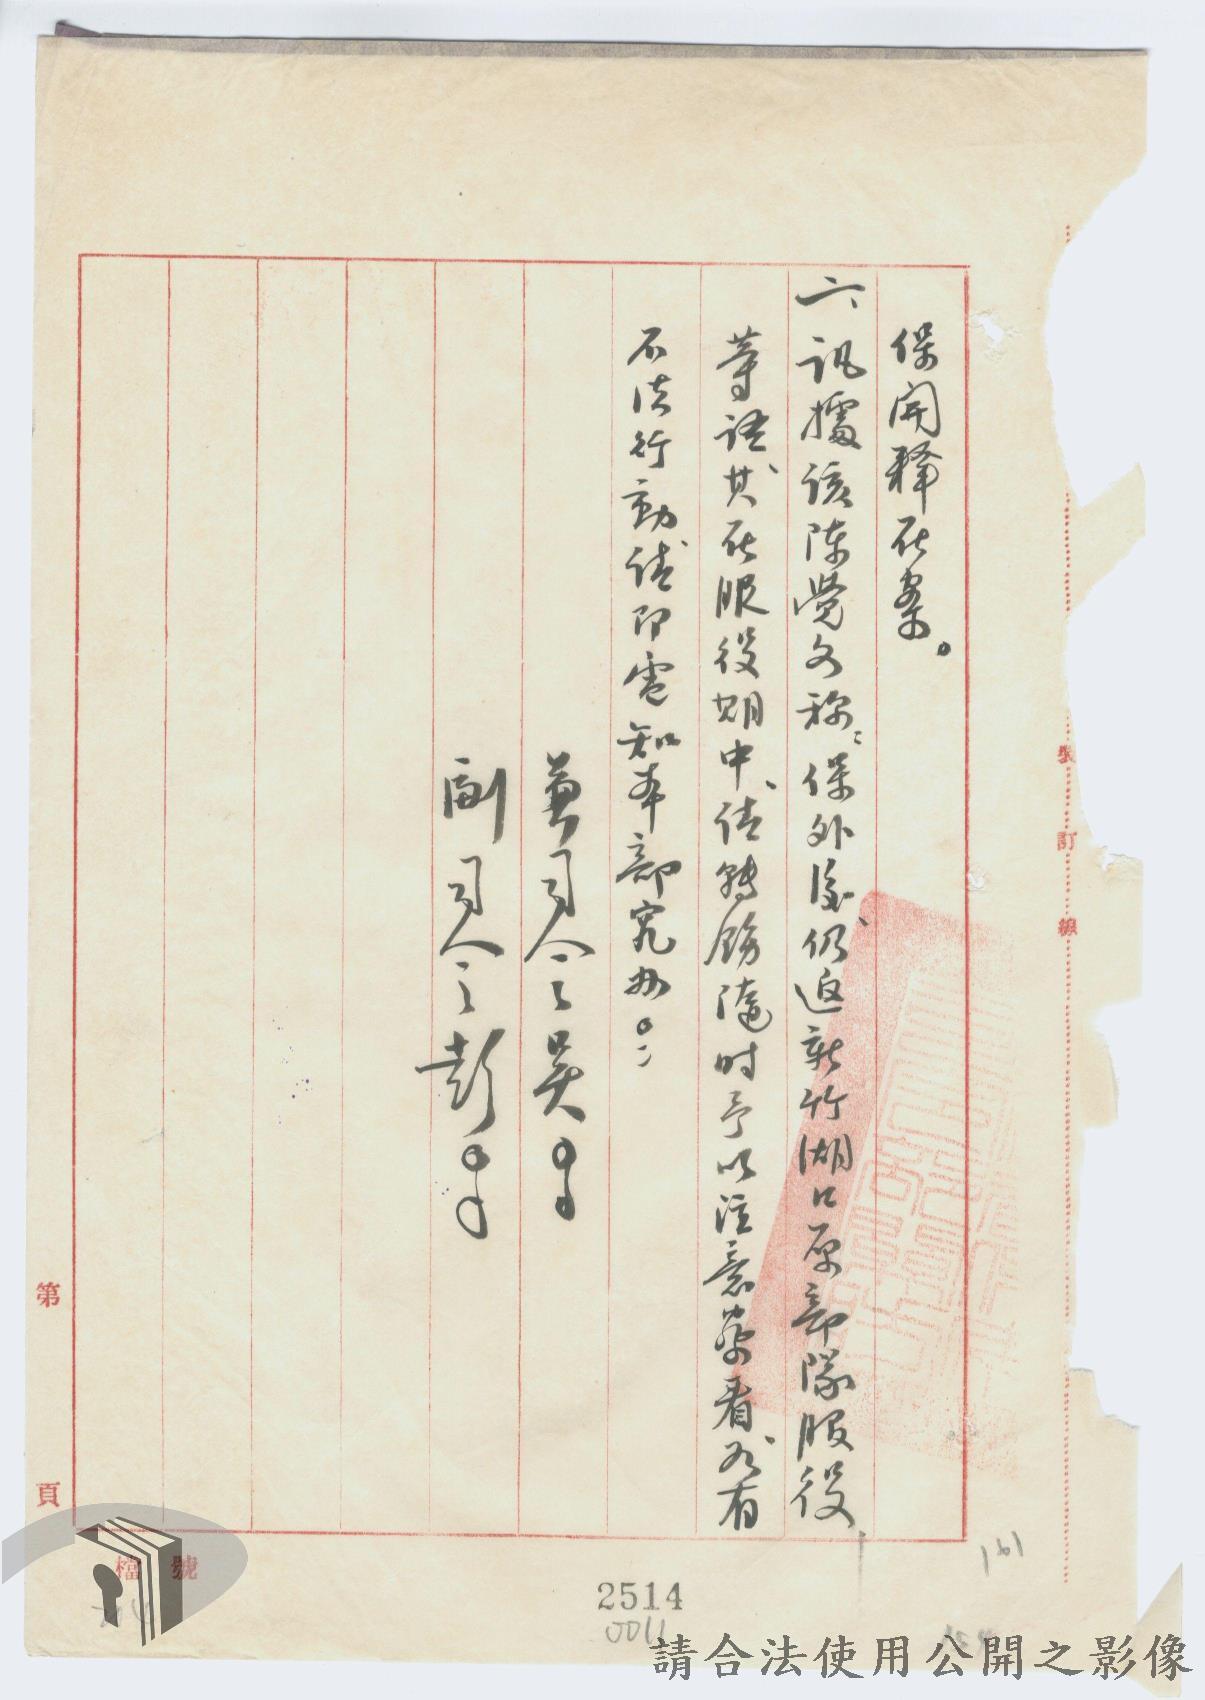 保開釋在案。
六、訊據該陳覺文称：保外後、仍返新竹湖口原部隊服役
等語、其在服役期中、請轉飭隨時予以注意察看、如有
不法行動、請即電知本部究办。
兼司令吳○○
副司令彭○○
裝訂線
第 頁
檔號
2514
0011
161
請合法使用公開之影像